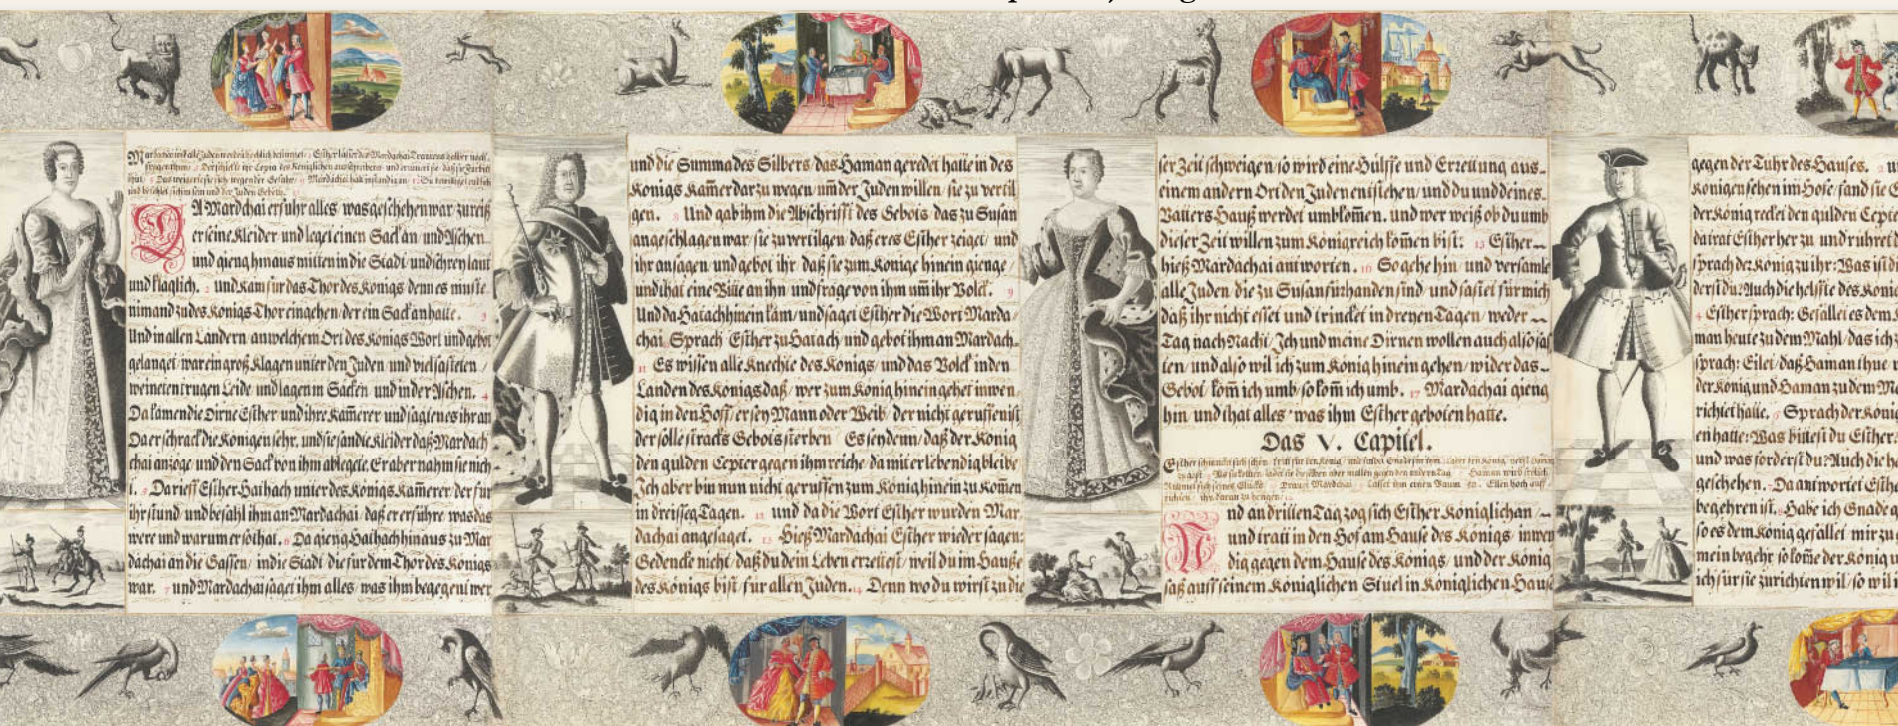 Mardachai und alle Juden werden
DA Mardchai erfuhr alles was geschehen war/ zureiß
er seine Kleider/ und leget einen Sack an/ und Aschen
und gieng hinaus mitten in die Stadt/ und schrey laut
und klaglich. 2 und kam fur das Thor des Konigs denn es muste
nimand zu des Konigs Thor eingehen/ der ein Sack anhatte. 3
Und in allen Landern/ an welchem Ort des Konigs Wort und gebot
gelanget/ war ein groß Klagen unter den Juden/ und viel fasteten/
weineten trugen Leide/ und lagen in Sacken und in der Aschen. 4
Da kamen die Dirne Esther und ihre Kam̄erer und sagten es ihr an
Da erschrack die Konigen sehr, und sie sandte Kleider daß Mardach
chai anzoge/ und den Sack von ihm ablegete. Er aber nahm sie nich
t. 5 Da rieff Esther Hathach unter des Konigs Kam̄erer der fur
ihr stund/ und befahl ihm an Mardachai/ daß er erführe/ was das
were und warum er so that. 6 Da gieng Hathach hinaus zu Mar
dachai an die Gassen/ in die Stadt/ die fur dem Thor des Konigs
war. 7 und Mardachai saget ihm alles/ was ihm begegent wer
und die Summa des Silbers/ das Haman geredet hatte in des
Konigs Kam̄er dar zu wegen/ um̄ der Juden willen/ sie zu vertil
gen. 8 Und gab ihm die Abschrifft des Gebots/ das zu Susan
angeschlagen war/ sie zu vertilgen/ daß er es Esther zeiget/ und
ihr ansagen/ und gebot ihr/ daß sie zum Konige hinein gienge
und that eine Bitte an ihn/ und frage von ihm um̄ ihr Volck. 9
Und da Hatach hinein kam/ und saget Esther die Wort Marda/
chai Sprach Esther zu Hatach/ und gebot ihm an Mardach-
11 Es wissen alle Knechte des Konigs/ und das Volck in den
Landen des Konigs daß/ wer zum Konig hinein gehet inwen
dig in den Hoff/ er sey Mann oder Weib/ der nicht geruffen ist
der solle stracks Gebots sterben/ Es sey denn/ daß der Konig
den gulden Cepter gegen ihm reiche/ da mit er lebendig bleibe
Ich aber bin nun nicht geruffen zum Konig hinein zu Kom̄en
in dreisseg Tagen. 12 und da die Wort Esther wurden Mar
dachai angesaget. 13 Hieß Mardachai Esther wieder sagen:
Gedencke nicht/ daß du dein Leben errettest/ weil du im Hauße
des Konigs bist/ fur allen Juden. 14 Denn wo du wirst zu die
ser Zeit schweigen/ so wird eine Hülffe und Errettung aus-
einem andern Ort den Juden entstehen/ und du und deines-
Vatters Hauß werdet umbkom̄en. und wer weiß ob du umb
dieser Zeit willen zum Konigreich kom̄en bist: 15 Esther--
hieß Mardachai antworten. 16 So gehe hin/ und versamle
alle Juden/ die zu Susan fürhanden sind/ und fastet für mich
daß ihr nicht esset und trincket in dreyen Tagen/ weder--
Tag nach Nacht/ Ich und meine Dirnen wollen auch also fas
ten/ und also wil ich zum Konig hinein gehen/ wider das-
Gebot/ kom̄ ich umb/ so kom̄ ich umb. 17 Mardachai gieng
hin und that alles/ was ihm Esther geboten hatte.
Das V. Capitel.
Und an dritten Tag zog sich Esther Königlich an/
und tratt in den Hof am Hause des Konigs inwen
dig gegen dem Hause des Konigs/ und der Konig
saß auff seinem Königlichen Stuel in Königlichen Hause
gegen der Tuhr des Hauses. 2
Konigen sehen im Hofe/ fand sie G
der Konig recket den gulden Cepte
da trat Esther her zu und ruhret
sprach der Konig zu ihr: Was ist di
derst du? Auch die helffte des Konig
4 Esther sprach: Gefallet es dem K
man heute zu dem Mahl/ das ich z
sprach: Eilet/ daß Haman thue/ w
der Konig und Haman zu dem M
richtet hatte. 6 Sprach der Konig
en hatte: Was bittest du Esther:
und was forderst du? Auch die he
geschehen. 7 Da antwortet Esthe
begehren ist. 8 Habe ich Gnade
so es dem Konig gefallet mir zu
mein begehr so kom̄e der Konig u
ich fur sie zurichten wil/ so wil i